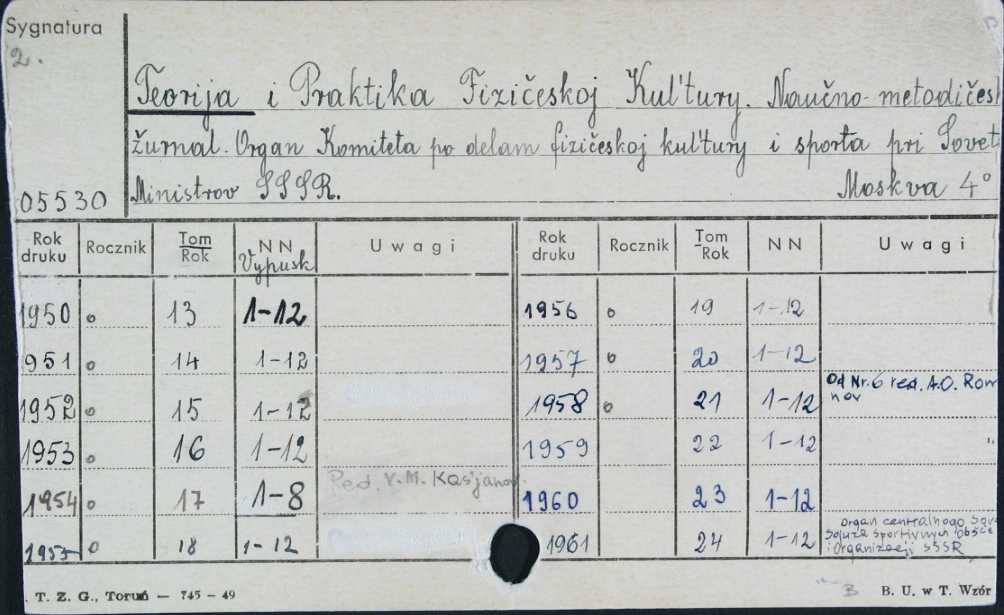 Sygnatura
2.
Teorija i Praktika Fizičeskoj Kul'tury. Naučno-metodičes
žurnal. Organ Komiteta po delam fizičeskoj kul'tury i sporta pri Sovet
05530 Ministrov SSSR. Moskva 4°
Rok druku Rocznik Tom Rok NN Vypusk Uwagi Rok druku Rocznik Tom Rok NN Uwagi
1950 o 13 1-12 1956 o 19 1-12
1951 o 14 1-12 1957 o 20 1-12
1952 o 15 1-12 1958 o 21 1-12 Od Nr. 6 red. A.O. Romanov
1953 o 16 1-12 1959 22 1-12 "
1954 o 17 1-8 Red. V.M. Kas'janov. 1960 23 1-12
1955 o 18 1-12 1961 24 1-12 Organ centralnogo
Sojuza sportivnych
i Organizacij SSSR
. T. Z. G., Toruń — 745 - 49 B B. U. w T. Wzór